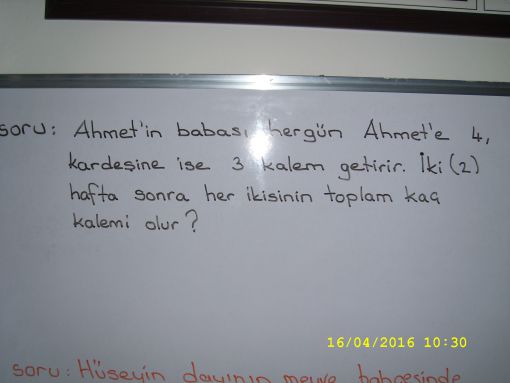 soru: Ahmet'in babası hergün Ahmet'e 4,
kardeşine ise 3 kalem getirir. İki (2)
hafta sonra her ikisinin toplam kaç
kalemi olur?
16/04/2016 10:30
soru: Hüseyin dayının meyve bahçesinde